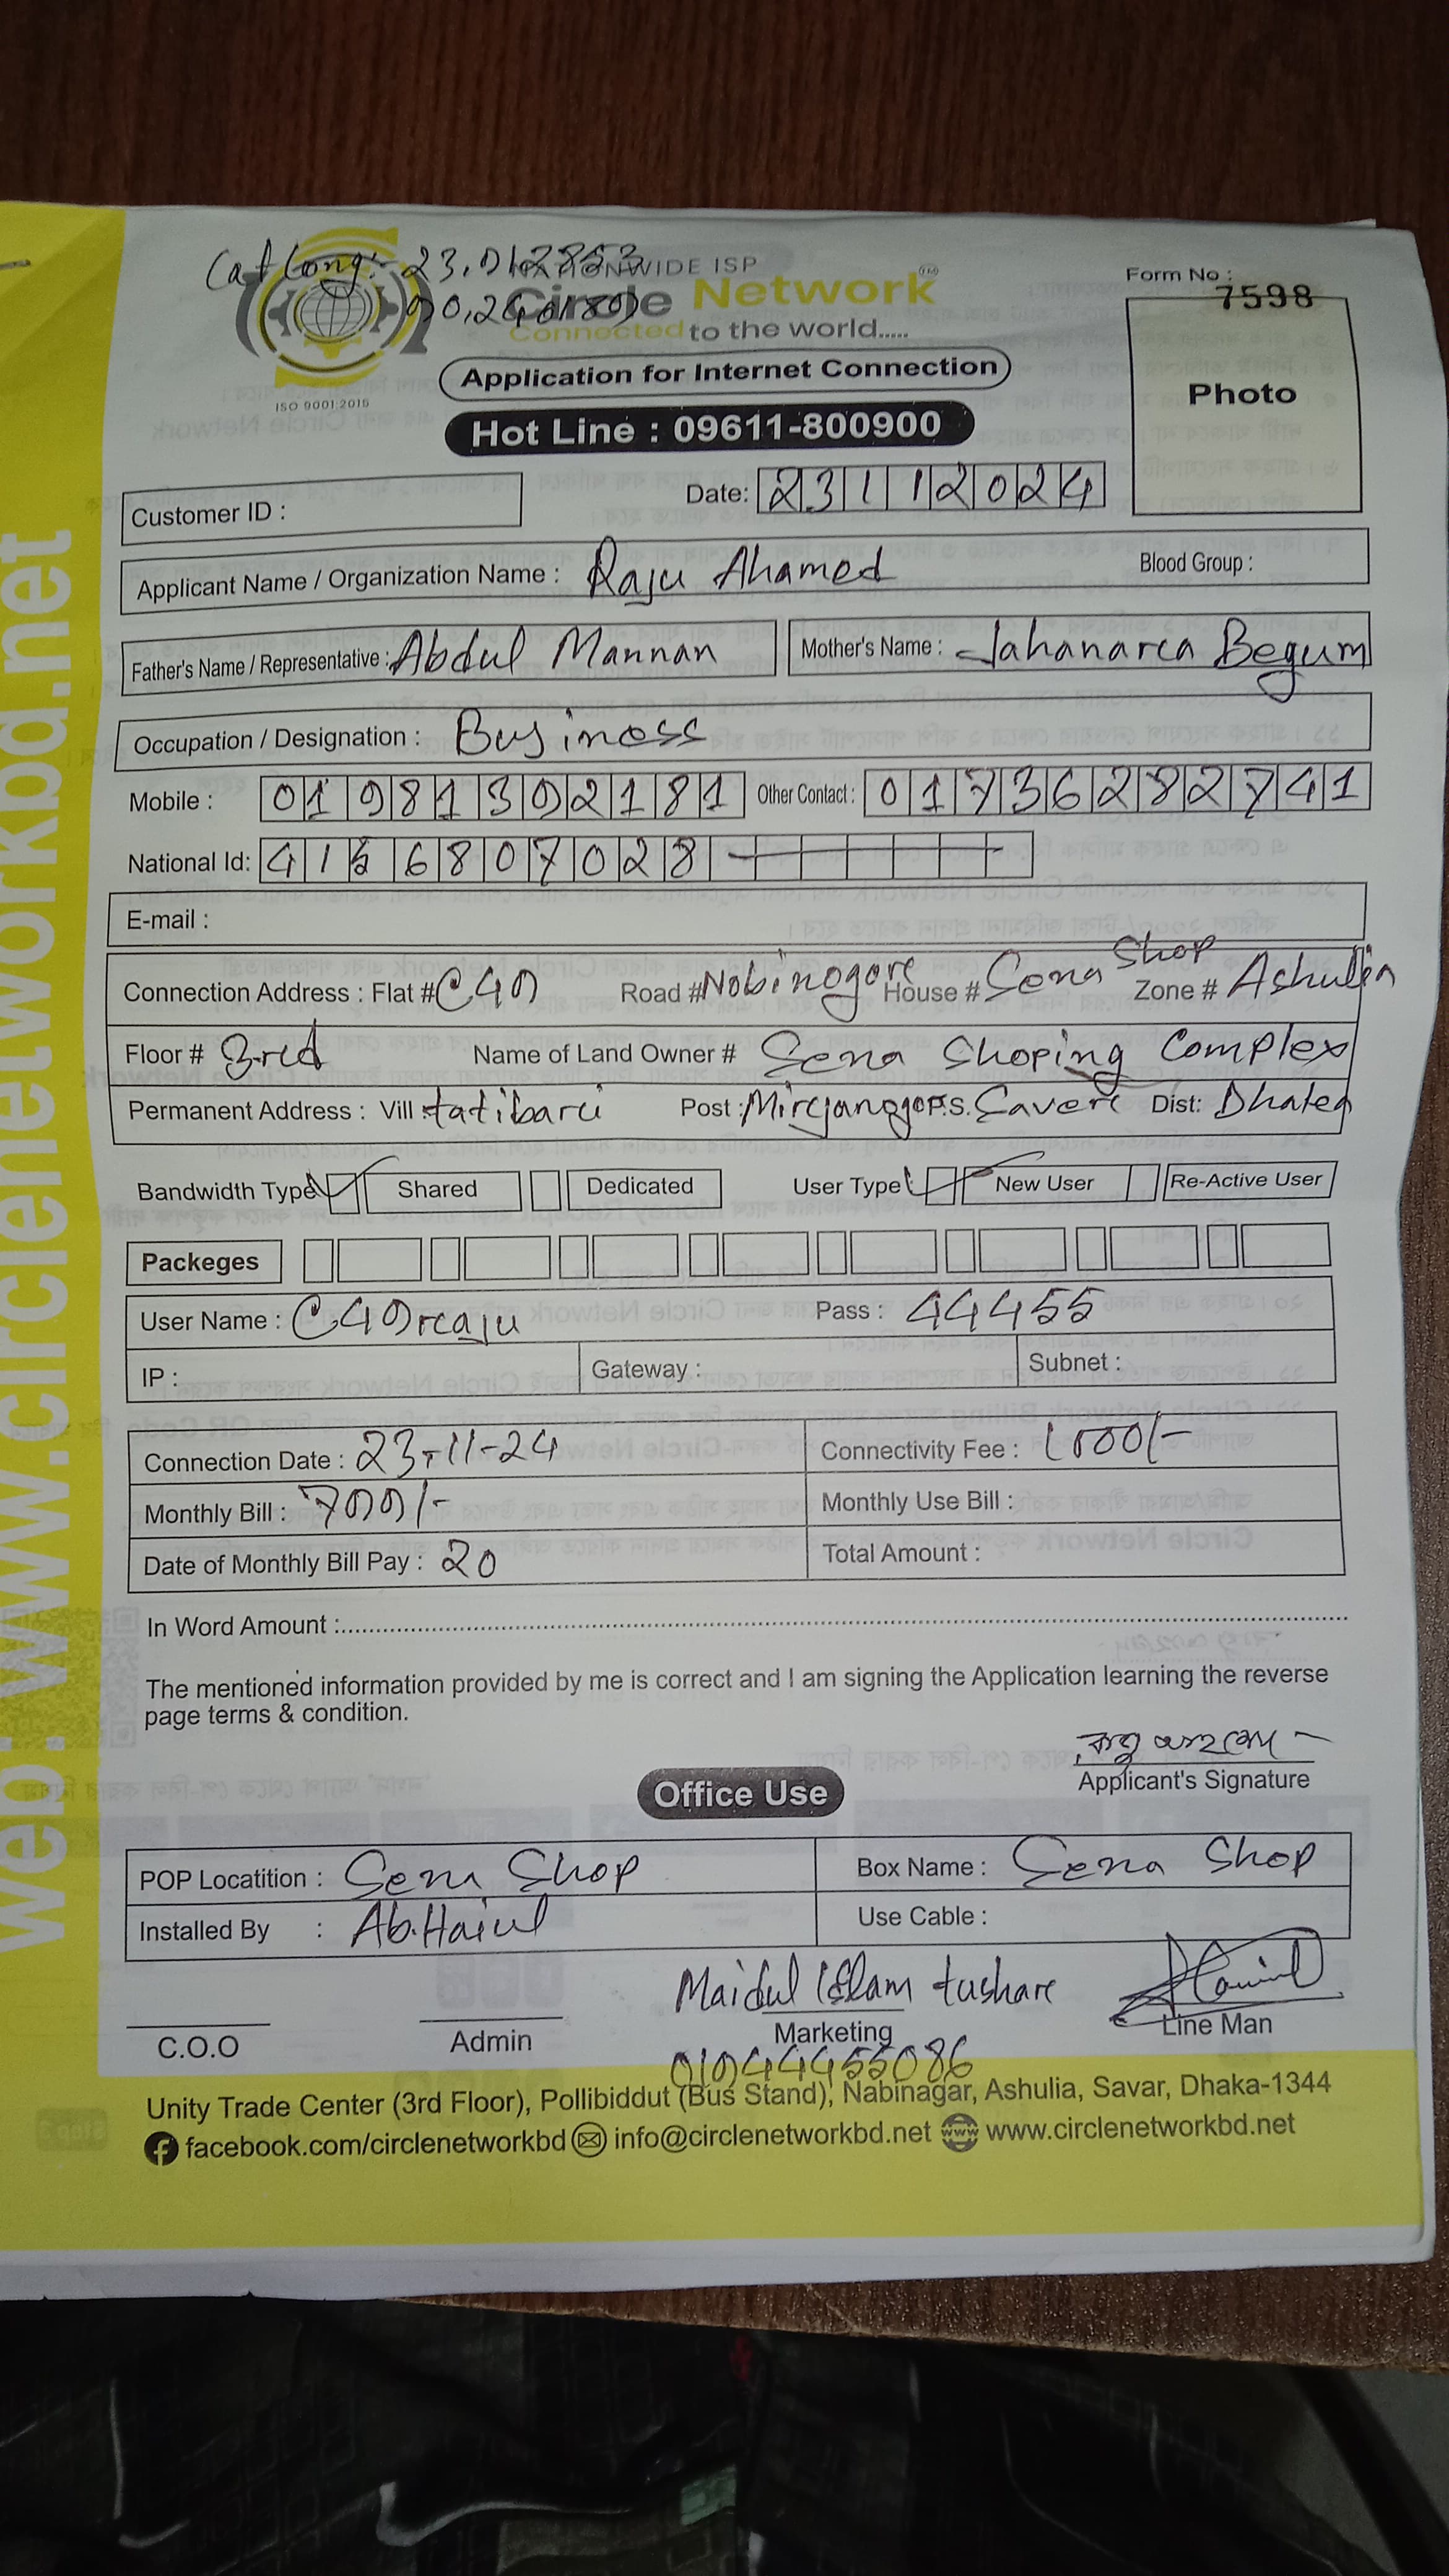 NATIONWIDE ISP
Circle Network
Connected to the world.....
ISO 9001:2015
Application for Internet Connection
Hot Line : 09611-800900
Form No : 7598
Photo
Customer ID :
Date: 23112024
Applicant Name / Organization Name : Raju Ahamed Blood Group :
Father's Name / Representative : Abdul Mannan Mother's Name : Jahanara Begum
Occupation / Designation : Business
Mobile : Other Contact : 01736282741
National Id:
E-mail :
Connection Address : Flat # C49 Road # Nobinogore House # Sena Shop Zone # Ashulia
Floor # 3rd Name of Land Owner # Sena Shoping Complex
Permanent Address : Vill : tatibari Post : P.S. Savere Dist: Dhaka
Bandwidth Type Shared Dedicated User Type New User Re-Active User
Packeges
User Name : C49raju Pass : 44455
IP : Gateway : Subnet :
Connection Date : 23-11-24 Connectivity Fee : 1000/-
Monthly Bill : 700/- Monthly Use Bill :
Date of Monthly Bill Pay : 20 Total Amount :
In Word Amount :
The mentioned information provided by me is correct and I am signing the Application learning the reverse
page terms & condition.
Applicant's Signature
Office Use
POP Locatition : Sena Shop Box Name : Sena Shop
Installed By : Use Cable :
Maidul Islam tushare
C.O.O Admin Marketing Line Man
01944455086
Unity Trade Center (3rd Floor), Pollibiddut (Bus Stand), Nabinagar, Ashulia, Savar, Dhaka-1344
facebook.com/circlenetworkbd info@circlenetworkbd.net www.circlenetworkbd.net
web: www.circlenetworkbd.net